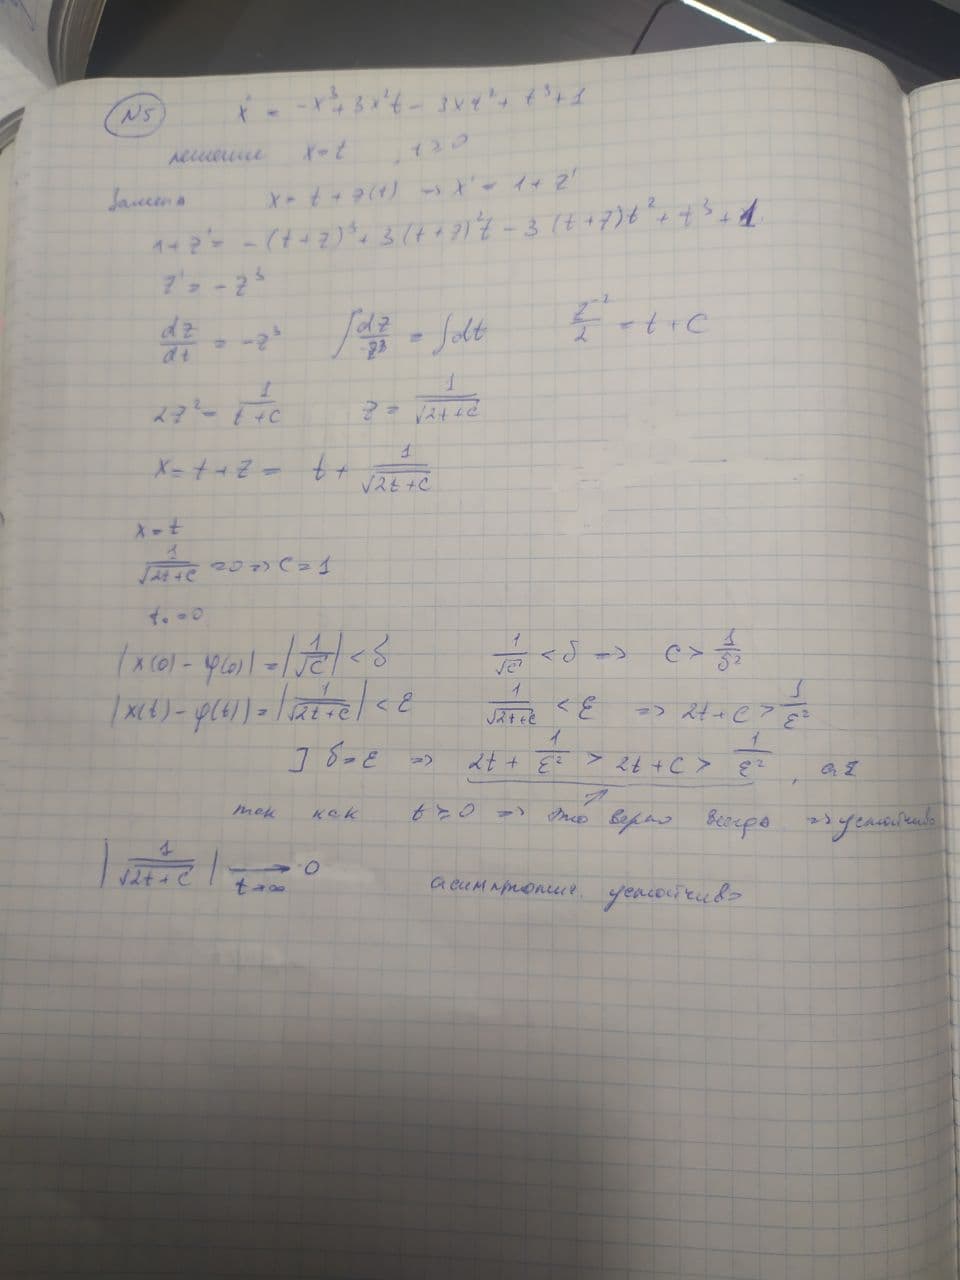 N5 x' = -x³ + 3x²t - 3xt² + t³ + 1
решение x = t , t ≥ 0
Замена x = t + z(t) => x' = 1 + z'
1 + z' = -(t+z)³ + 3(t+z)²t - 3(t+z)t² + t³ + 1
z' = -z³
dz/dt = -z³ ∫ dz/-z³ = ∫ dt z⁻²/2 = t + C
2z² = 1/(t+C) z = 1/√(2t+C)
x = t + z = t + 1/√(2t+C)
x = t
1/√(2t+C) = 0 => C = 1
t₀ = 0
|x(0) - φ(0)| = |1/√C| < δ 1/√C < δ => C > 1/δ²
|x(t) - φ(t)| = |1/√(2t+C)| < ε 1/√(2t+C) < ε => 2t + C > 1/ε²
] δ = ε => 2t + 1/ε² > 2t + C > 1/ε² ,
так как t ≥ 0 => это верно всегда => устойчиво
|1/√(2t+C)| → 0 t→∞ асимптотич. устойчиво